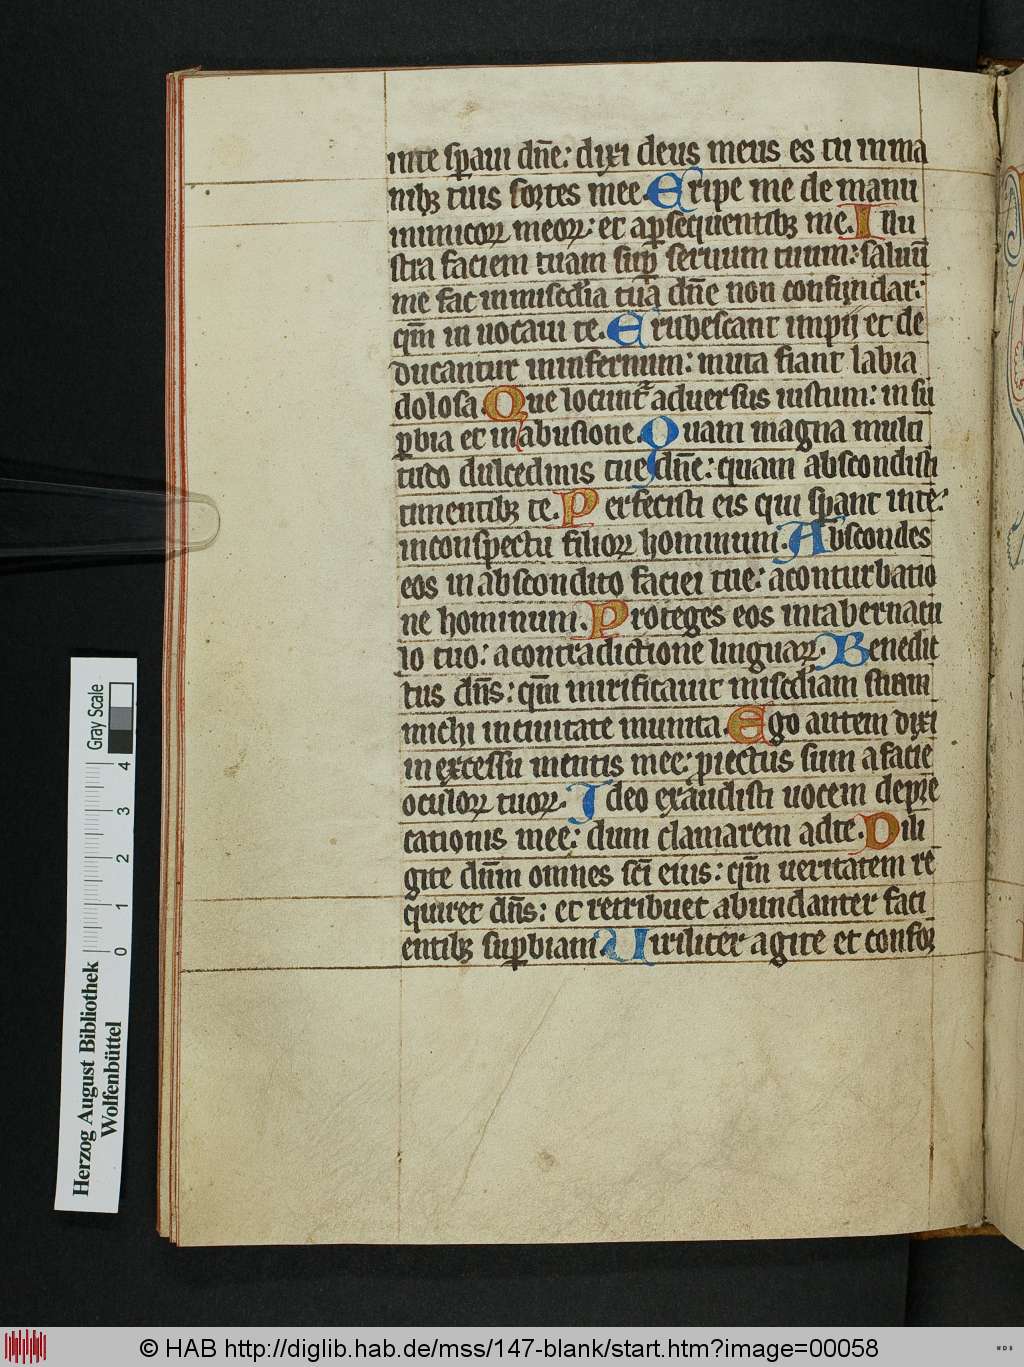 inte sꝑaui dn̄e: dixi deus meus es tu in ma
nibꝫ tuis sortes mee. Eripe me de manu
inimicoꝝ meoꝝ: et a ꝑsequentibꝫ me. Illu
stra faciem tuam suꝑ seruum tuum: saluū
me fac in misc̄dia tua dn̄e non confundar:
qm̄ inuocaui te. Erubescant impij et de
ducantur in infernum: muta fiant labia
dolosa. Que locuntᷣ aduersus iustum: in su
ꝑbia et in abusione. Quam magna multi
tudo dulcedinis tue dn̄e: quam abscondisti
timentibꝫ te. Perfecisti eis qui sꝑant in te:
in conspectu filioꝝ hominum. Abscondes
eos in abscondito faciei tue: a conturbatio
ne hominum. Proteges eos in tabernacu
lo tuo: a contradictione linguaꝝ. Benedic
tus dn̄s: qm̄ mirificauit misc̄diam suam
michi in ciuitate munita. Ego autem dixi
in excessu mentis mee: ꝓiectus sum a facie
oculoꝝ tuoꝝ. Ideo exaudisti uocem depre
cationis mee: dum clamarem ad te. Dili
gite dn̄m omnes sc̄i eius: qm̄ ueritatem re
quiret dn̄s: et retribuet abundanter faci
entibꝫ suꝑbiam. Uiriliter agite et confor
Gray Scale
0 1 2 3 4
Herzog August Bibliothek
Wolfenbüttel
© HAB http://diglib.hab.de/mss/147-blank/start.htm?image=00058